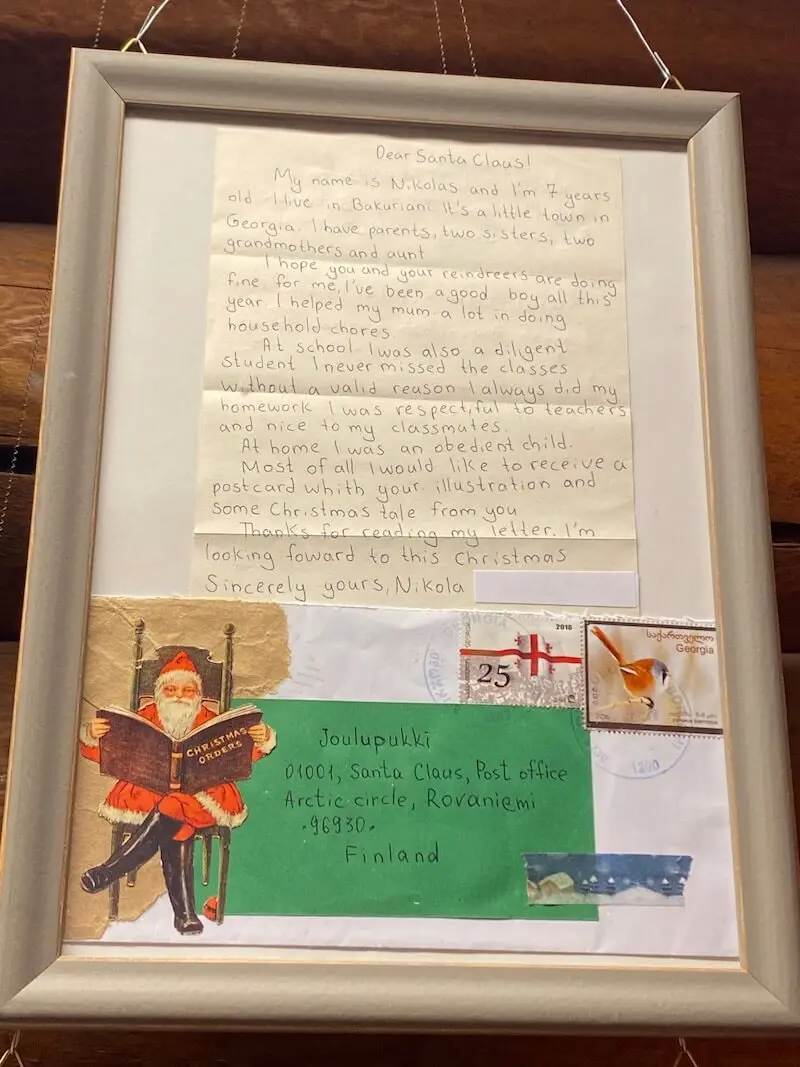 Dear Santa Claus!
My name is Nikolas and I'm 7 years
old I live in Bakuriani It's a little town in
Georgia. I have parents, two sisters, two
grandmothers and aunt
I hope you and your reindreers are doing
fine, for me, I've been a good boy all this
year. I helped my mum a lot in doing
household chores.
At school I was also a diligent
student I never missed the classes
without a valid reason I always did my
homework I was respectful to teachers
and nice to my classmates.
At home I was an obedient child.
Most of all I would like to receive a
postcard whith your illustration and
some Christmas tale from you
Thanks for reading my letter. I'm
looking foward to this Christmas
Sincerely yours, Nikola
2016
25
საქართველო
Georgia
CHRISTMAS
ORDERS
Joulupukki
01001, Santa Claus, Post office
Arctic circle, Rovaniemi
.96930.
Finland